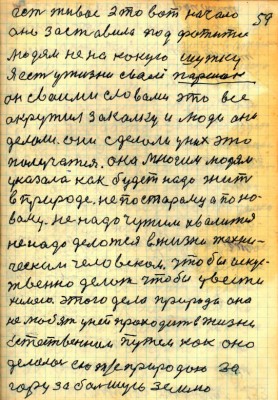 59
ест живое это вот начало
она заставила под
людям не на какую шутку
я ест у жизни своей паренак
он своими словами это все
окрутил закалку и люди она
делали. они сделали у них это
получатся. она многим людям
указала как будет надо жит
в природе. не постарому а по но-
вому. не надо чужим хвалится
не надо делатся в жизни техни-
ческим человеком. чтобы искус-
твенно делат чтобы увести
этого дела природа она
не любят у ней проходит в жизни
естественним путем как оно
делалас всю природою за
гору за большую землю